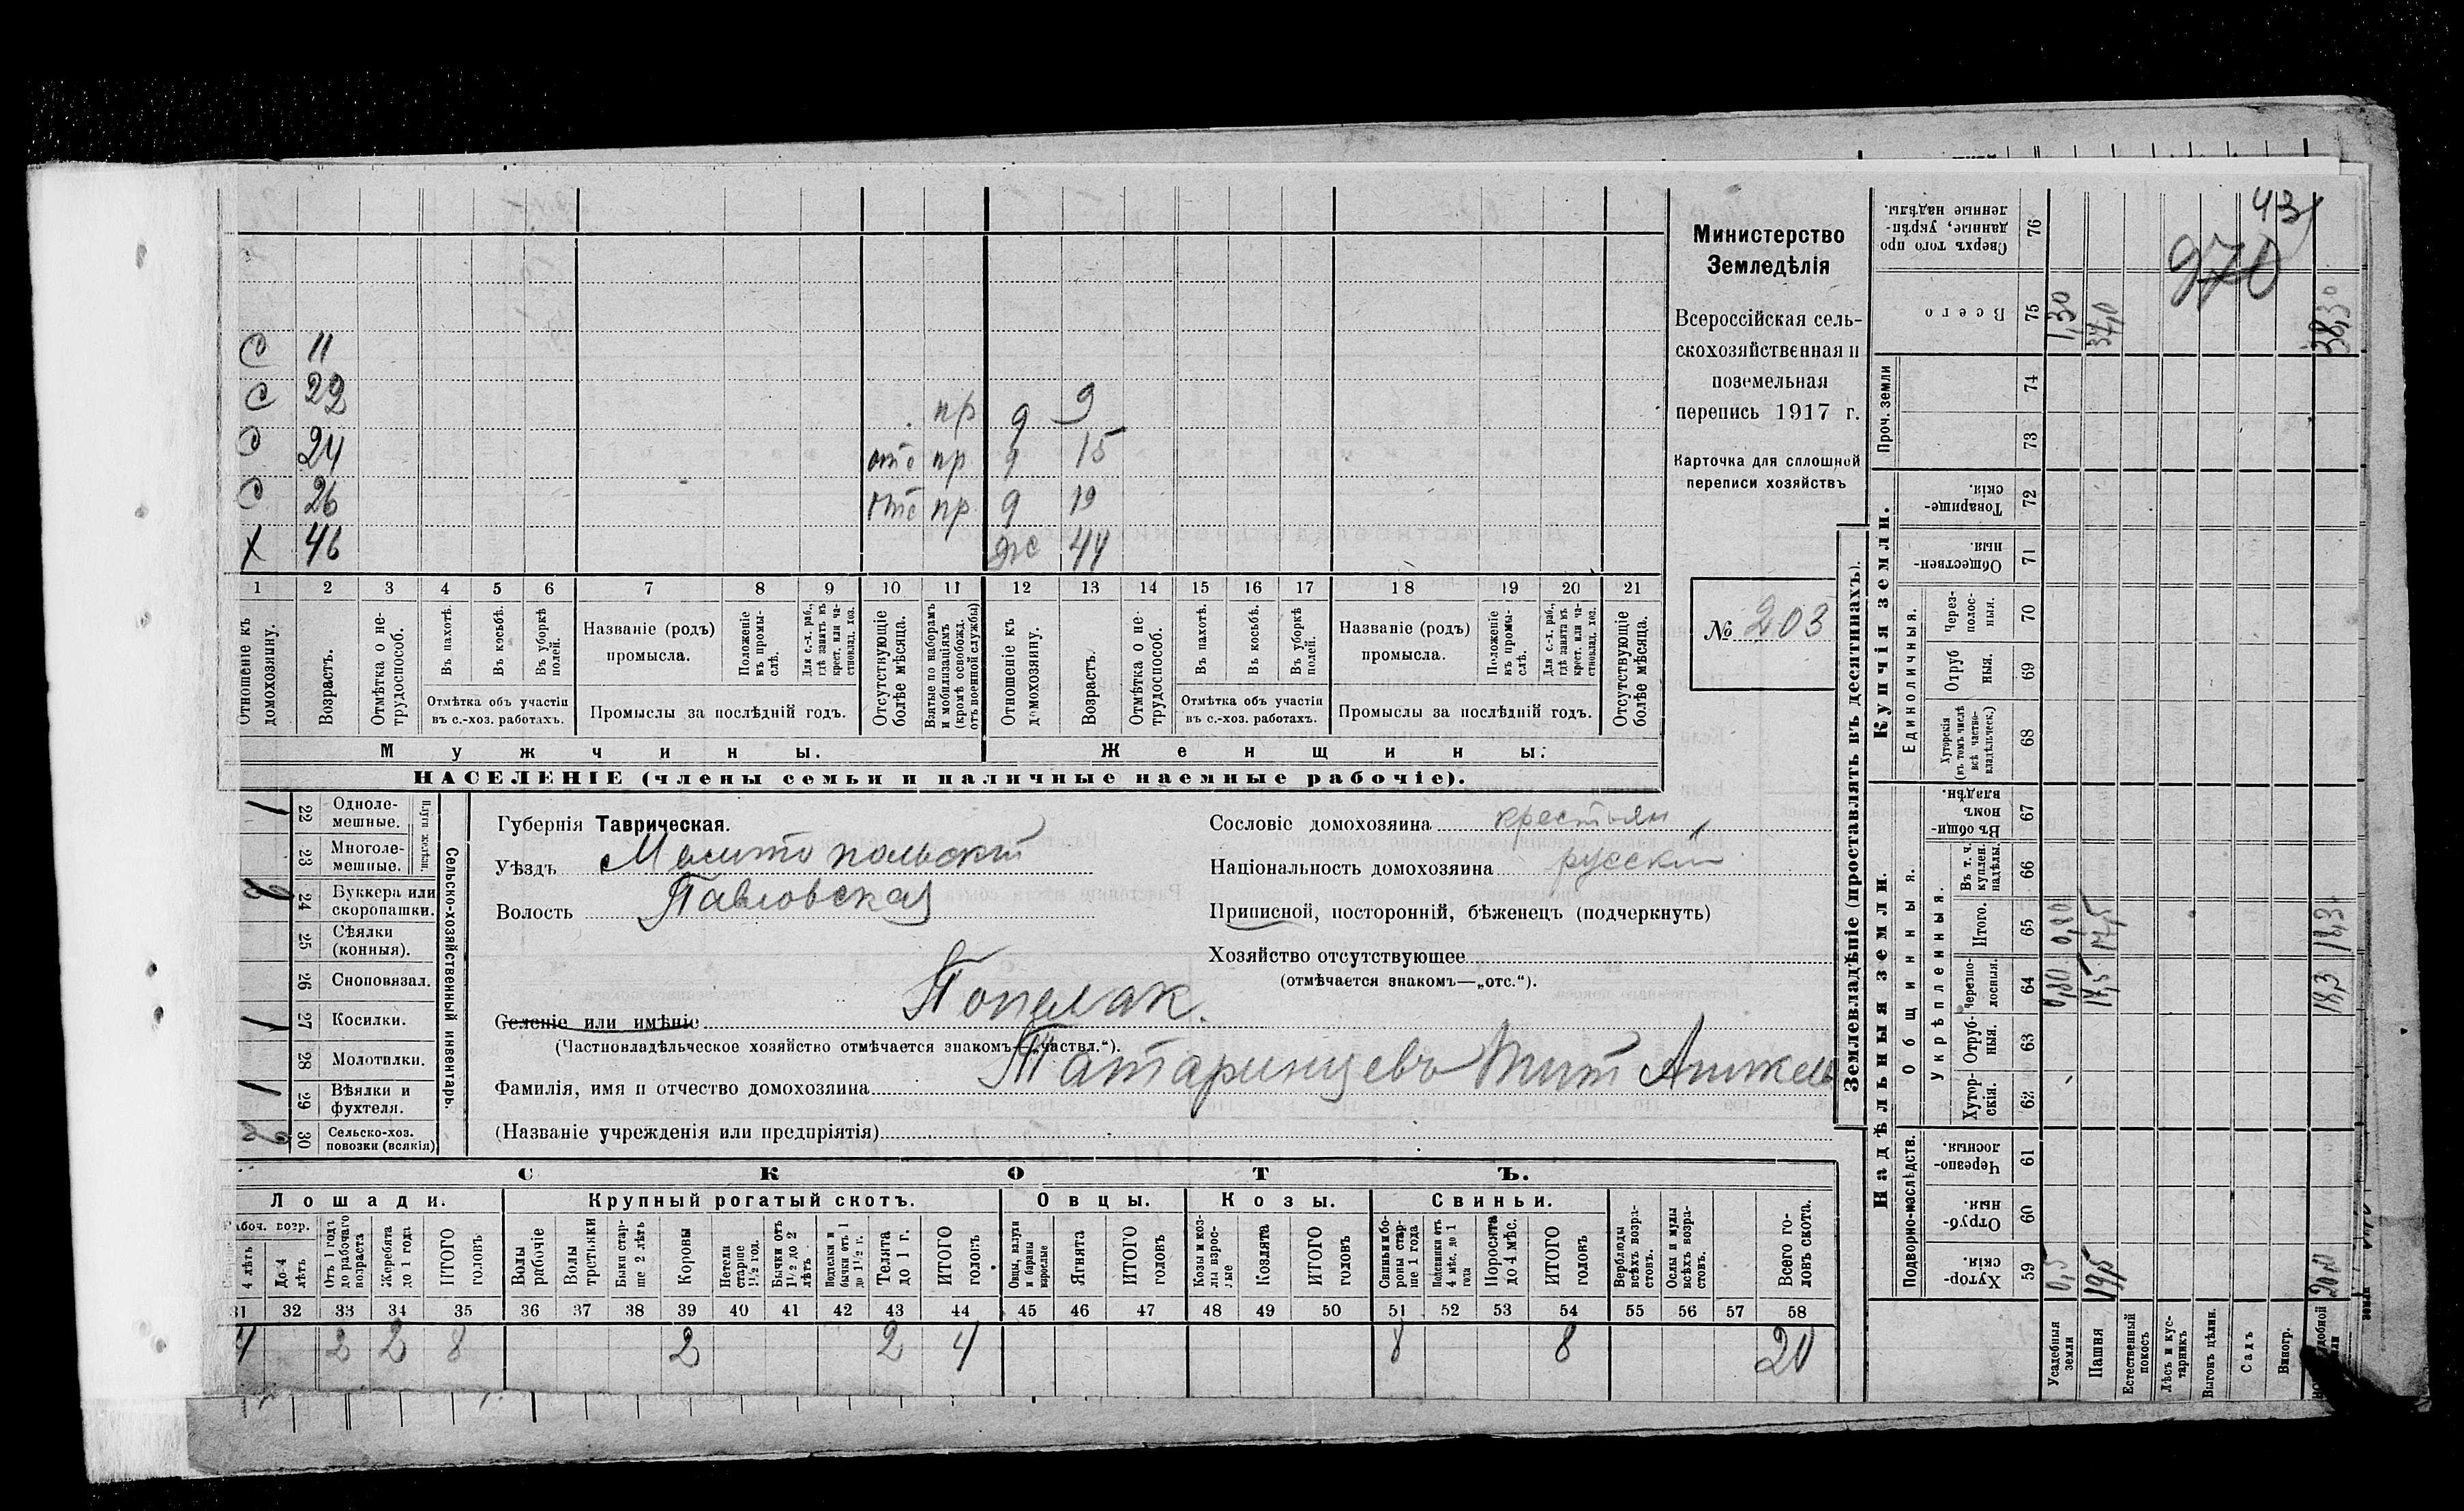 43
970
С 11
С 22 пр д 9
С 24 отс пр д 15
С 26 отс пр д 19
Х 46 Ж 44
1 2 3 4 5 6 7 8 9 10 11 12 13 14 15 16 17 18 19 20 21
Отношеніе къ домохозяину.
Возрастъ.
Отмѣтка о не-трудоспособ.
Въ пахотѣ.
Въ косьбѣ.
Въ уборкѣ полей.
Отмѣтка объ участіи
въ с.-хоз. работахъ.
Названіе (родъ)
промысла.
Положеніе въ промы-слѣ.
Для с.-х. раб., гдѣ занятъ въ крест. или ча-стновлад. хоз.
Промыслы за послѣдній годъ.
Отсутствующіе болѣе мѣсяца.
Взятые по наборамъ и мобилизаціямъ (кромѣ освобожд. отъ военной службы)
Отношеніе къ домохозяину.
Возрастъ.
Отмѣтка о не трудоспособ.
Въ пахотѣ.
Въ косьбѣ.
Въ уборкѣ полей.
Отмѣтка объ участіи
въ с.-хоз. работахъ.
Названіе (родъ)
промысла.
Положеніе въ промы-слѣ.
Для с.-х. раб., гдѣ занята въ крест. или ча-стновлад. хоз.
Промыслы за послѣдній годъ.
Отсутствующіе болѣе мѣсяца.
Мужчины.
Женщины.
НАСЕЛЕНІЕ (члены семьи и наличные наемные рабочіе).
Министерство
Земледѣлія
Всероссійская сель-
скохозяйственная и
поземельная
перепись 1917 г.
Карточка для сплошной
переписи хозяйствъ
№ 203
Сельско-хозяйственный инвентарь.
22 Одноле-мешные.
23 Многоле-мешные.
24 Буккера или скоропашки.
25 Сѣялки (конныя).
26 Сноповязал.
27 Косилки.
28 Молотилки.
29 Вѣялки и фухтеля.
30 Сельско-хоз. повозки (всякія)
Губернія Таврическая.
Уѣздъ Мелитопольскій
Волость Павловская
Селеніе или имѣніе
(Частновладѣльческое хозяйство отмѣчается знакомъ—„частвл.“).
Фамилія, имя и отчество домохозяина Татаринцевъ Титъ
(Названіе учрежденія или предпріятія)
Сословіе домохозяина крестьян
Національность домохозяина русскій
Приписной, посторонній, бѣженецъ (подчеркнуть)
Хозяйство отсутствующее
(отмѣчается знакомъ—„отс.“).
СКОТЪ.
Лошади.
Крупный рогатый скотъ.
Овцы.
Козы.
Свиньи.
4 лѣтъ
До 4 лѣтъ
Отъ 1 года до рабочаго возраста
Жеребята до 1 года
ИТОГО головъ
Волы рабочіе
Волы третьяки
Быки стар-ше 2 лѣтъ
Коровы
Нетели старше 1½ год.
Бычки отъ 1½ до 2 лѣтъ
Подтелки и бычки отъ 1 до 1½ г.
Телята до 1 г.
ИТОГО головъ
Овцы, валухи и бараны взрослые
Ягнята
ИТОГО головъ
Козы и коз-лы взрос-лые
Козлята
ИТОГО головъ
Свиньи бо-ровы стар-ше 1 года
Подсвинки отъ 4 мѣс. до 1 года
Поросята до 4 мѣс.
ИТОГО головъ
Верблюды всѣхъ возра-стовъ.
Ослы и мулы всѣхъ возра-стовъ.
Всего го-ловъ скота.
31 32 33 34 35 36 37 38 39 40 41 42 43 44 45 46 47 48 49 50 51 52 53 54 55 56 57 58
4 2 2 8 2 2 4 8 8 20
Землевладѣніе (проставлять въ десятинахъ).
Купчія земли.
Надѣльныя земли.
Проч. земли
Единоличныя.
Общинныя.
Укрѣпленныя.
Подворно-наслѣдств.
76 Сверхъ того про данные, укрѣп-ленные надѣлы.
75 Всего 1,30 37,0 38,30
74
73
72 Товарище-скія.
71 Обществен-ныя.
70 Через-полос-ныя.
69 Отруб ныя.
68 Хуторскія (въ томъ числѣ всѣ частно-владѣльческ.)
67 Въ общи-номъ владѣн.
66 Въ т. ч. куплен. надѣлы.
65 Итого. 0,80 17,5 18,3
64 Черезпо-лосныя. 0,80 17,5 18,3
63 Отруб-ныя.
62 Хутор-скія.
61 Черезпо-лосныя.
60 Отруб-ныя.
59 Хутор-скія. 0,5 19,5 20,0
Усадебныя земли
Пашня
Естественный покосъ
Лѣсъ и кус-тарникъ
Выгонъ цѣлин.
Садъ
Виногр.